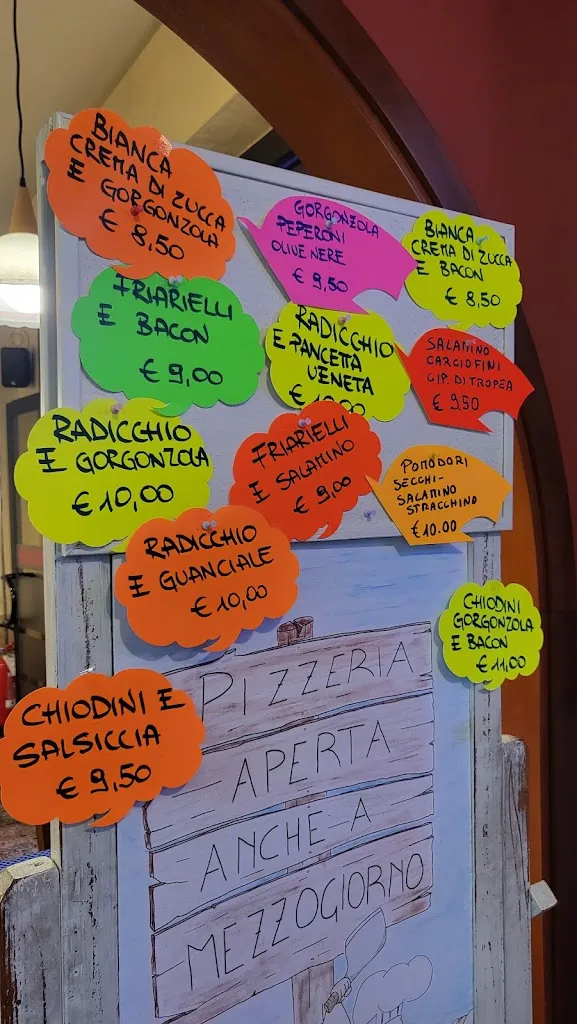 BIANCA
CREMA DI ZUCCA
E GORGONZOLA
€ 8,50
GORGONZOLA
PEPERONI
OLIVE NERE
€ 9,50
BIANCA
CREMA DI ZUCCA
E BACON
€ 8,50
FRIARIELLI
E BACON
€ 9,00
RADICCHIO
E PANCETTA
VENETA
SALAMINO
CARCIOFINI
CIP. DI TROPEA
€ 9,50
RADICCHIO
E GORGONZOLA
€ 10,00
FRIARIELLI
E SALAMINO
€ 9,00
POMODORI
SECCHI-
SALAMINO
STRACCHINO
€10.00
RADICCHIO
E GUANCIALE
€ 10,00
CHIODINI
GORGONZOLA
E BACON
€ 11,00
CHIODINI E
SALSICCIA
€ 9,50
PIZZERIA
APERTA
ANCHE A
MEZZOGIORNO